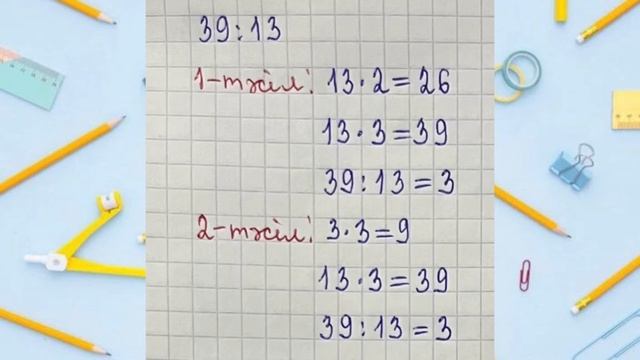 39:13
1-тәсіл: 13·2=26
13·3=39
39:13=3
2-тәсіл: 3·3=9
13·3=39
39:13=3